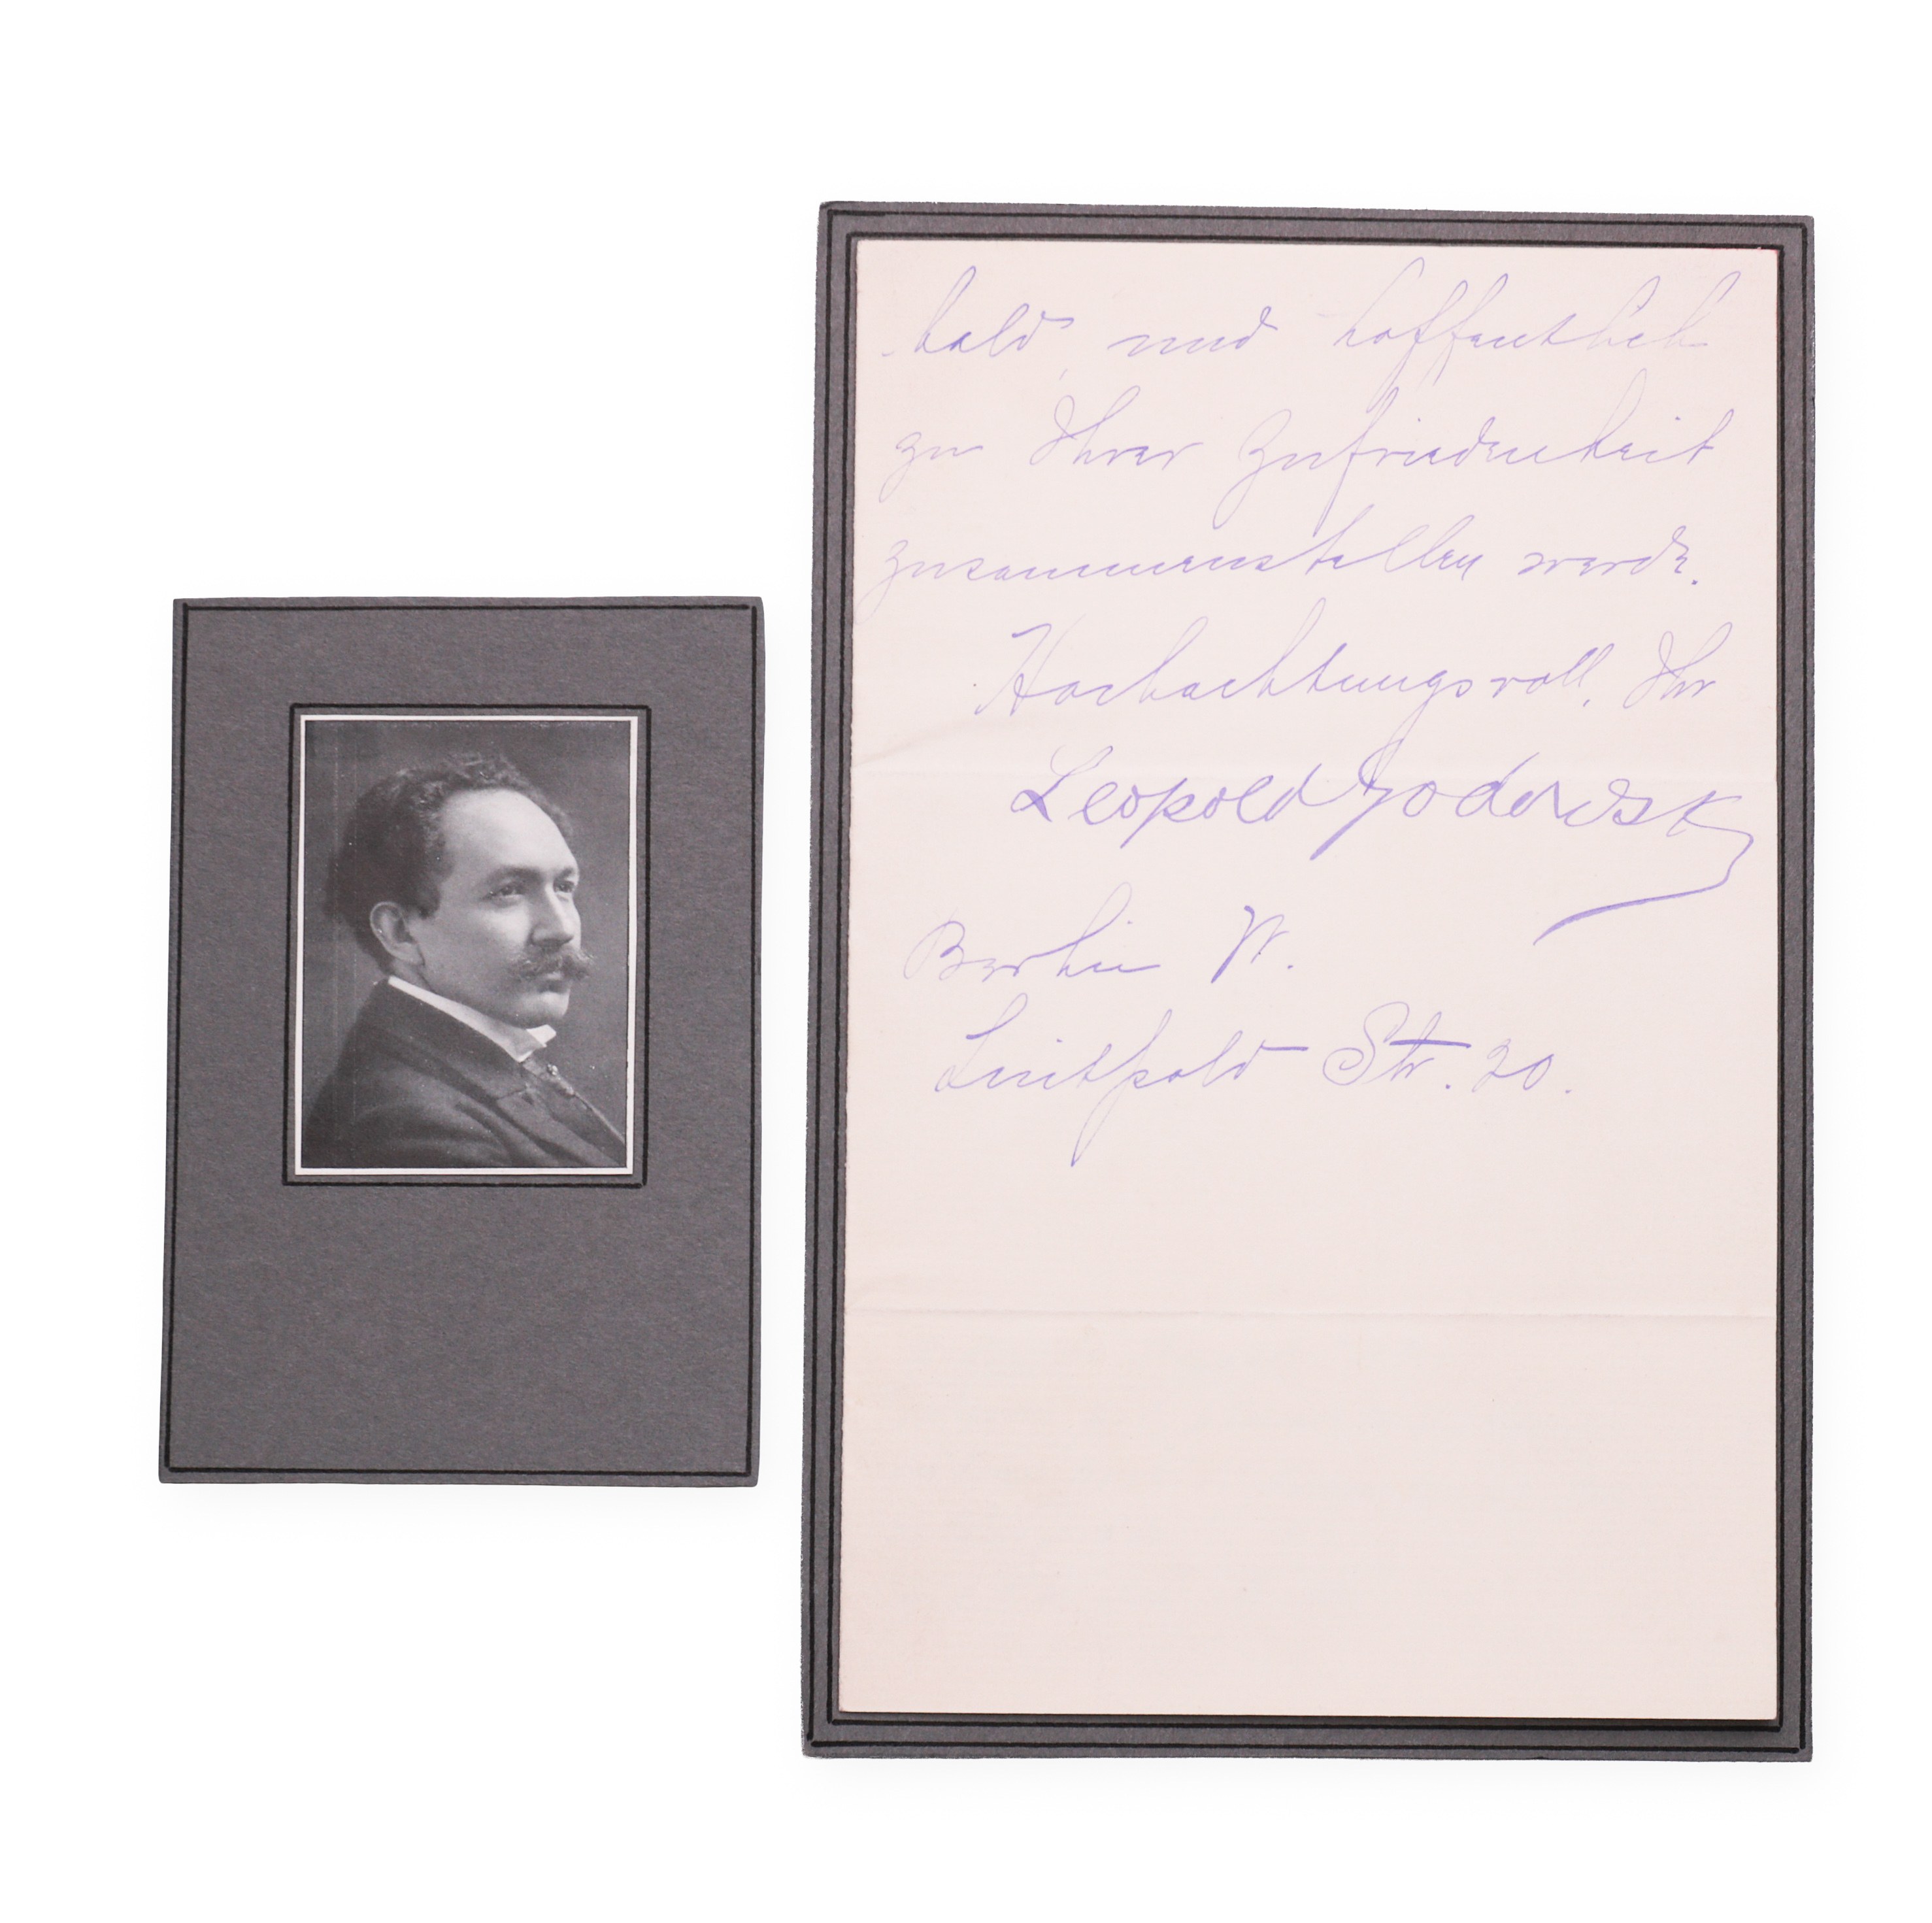 bald, und hoffentlich
zu Ihrer Zufriedenheit
zusammenstellen werde.
Hochachtungsvoll, Ihr
Leopold Godowsky
Berlin W.
Luitpold Str. 20.